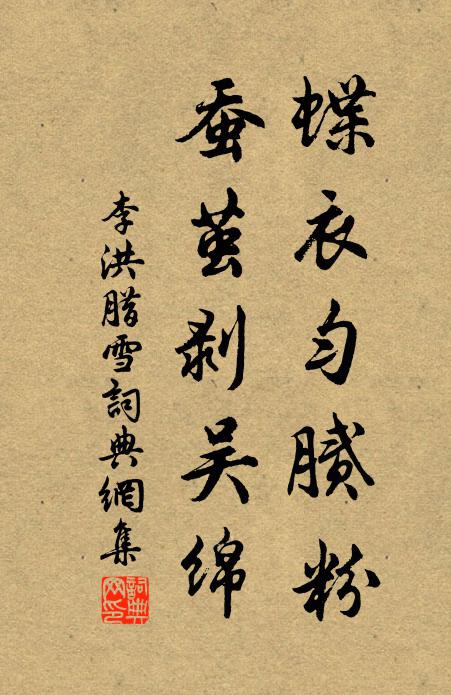 蝶衣匀腻粉
蚕茧剥吴绵
李洪腊雪詞典網集
詞典网印